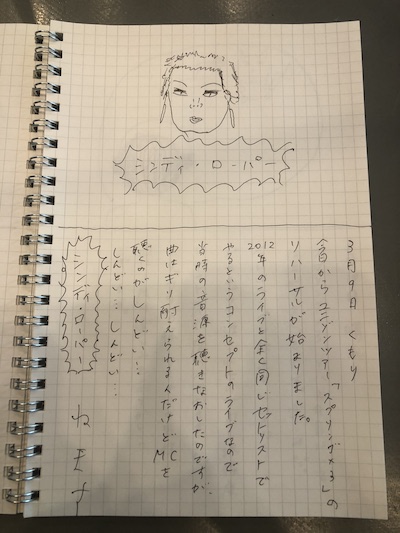 シンディ・ローパー
3月9日 くもり
今日からユニゾンツアー「スプリング×3」の
リハーサルが始まりました。
2012年のライブと全く同じセットリストで
やるというコンセプトのライブなので
当時の音源を聴きなおしたのですが、
曲はギリ耐えられるんだけどMCを
聴くのがしんどい…
しんどい…しんどい…
シンディ・ローパー